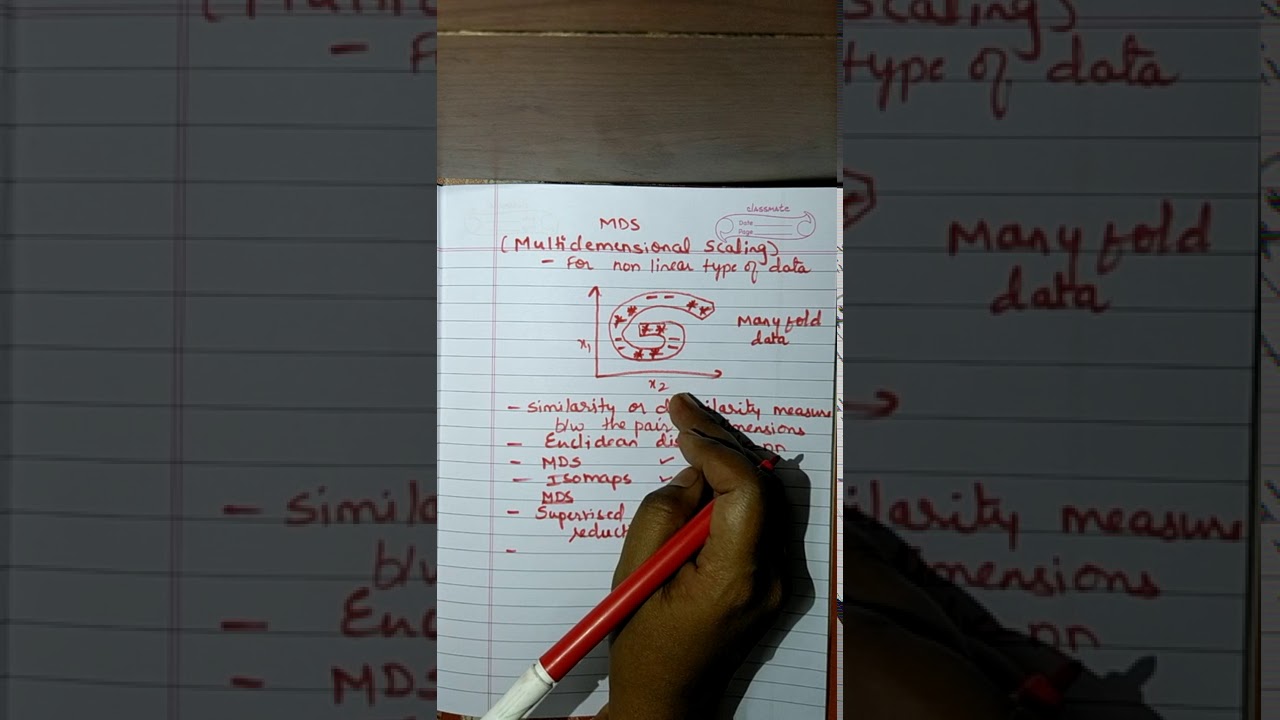 classmate
Date
Page
MDS
(Multidemensional Scaling)
- For non linear type of data
x1
Many fold
data
x2
- Similarity or measure
b/w the pair
- Euclidean
- MDS ✓
- Isomaps ✓
MDS
- Supervised
-